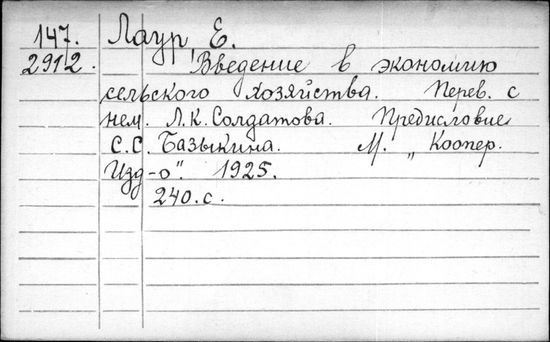 147. Лаур, Е.
2912. Введение в экономию
сельского хозяйства. Перев. с
нем. Л.К. Солдатова. Предисловие
С.С. Базыкина. М. „Коопер.
Изд-о". 1925.
240. с.